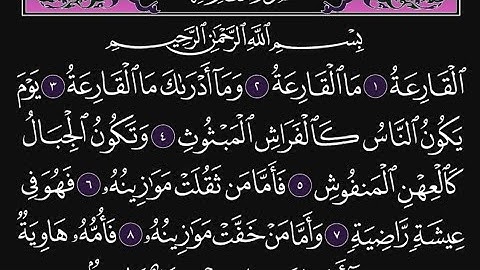 بِسْمِ ٱللَّهِ ٱلرَّحْمَٰنِ ٱلرَّحِيمِ
ٱلْقَارِعَةُ ١ مَا ٱلْقَارِعَةُ ٢ وَمَآ أَدْرَىٰكَ مَا ٱلْقَارِعَةُ ٣ يَوْمَ
يَكُونُ ٱلنَّاسُ كَٱلْفَرَاشِ ٱلْمَبْثُوثِ ٤ وَتَكُونُ ٱلْجِبَالُ
كَٱلْعِهْنِ ٱلْمَنفُوشِ ٥ فَأَمَّا مَن ثَقُلَتْ مَوَٰزِينُهُۥ ٦ فَهُوَ فِى
عِيشَةٍ رَّاضِيَةٍ ٧ وَأَمَّا مَنْ خَفَّتْ مَوَٰزِينُهُۥ ٨ فَأُمُّهُۥ هَاوِيَةٌ